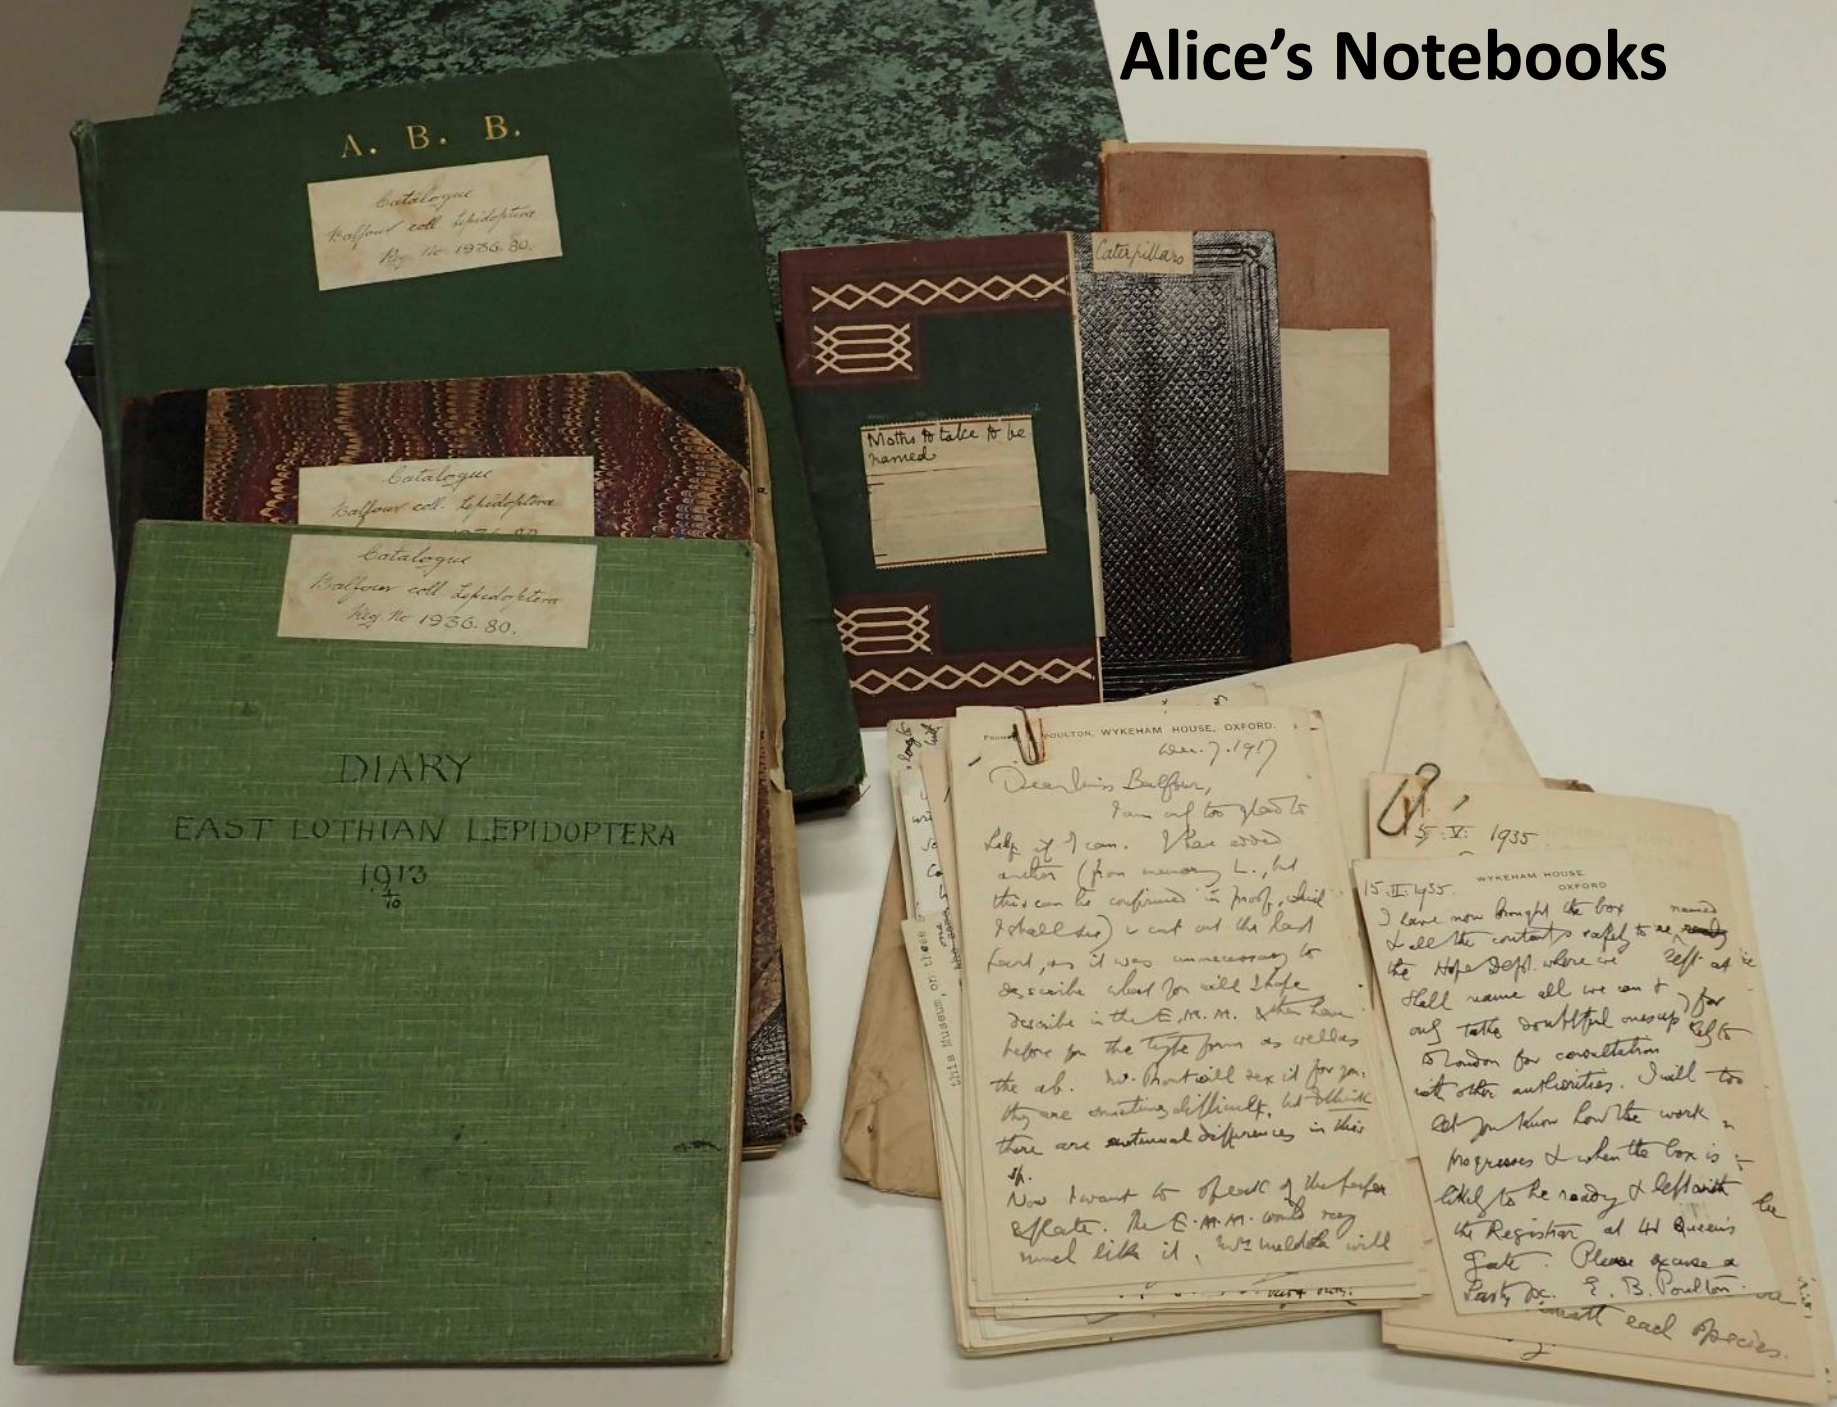 Alice’s Notebooks
A. B. B.
Catalogue
Balfour coll. Lepidoptera
Reg. No 1936.80.
Catalogue
Balfour coll. Lepidoptera
1936.80
Catalogue
Balfour coll. Lepidoptera
Reg No 1936.80.
DIARY
EAST LOTHIAN LEPIDOPTERA
1913
to
Moths to take to be
named
Caterpillars
this Museum, on these
POULTON, WYKEHAM HOUSE, OXFORD.
Dec. 7. 1917
Dear Miss Balfour,
I am only too glad to
help if I can. I have added
author (from memory L., but
this can be confirmed in proof, which
I shall see) & cut out the last
part, as it was unnecessary to
describe what you will I hope
describe in the E.M.M. & then have
before you the type form as well as
the ab. Mr. Prout will sex it for you.
they are sometimes difficult, but I think
there are antennal differences in this
sp.
Now I want to speak of the paper
& plate. The E.M.M. would very
much like it. will
5. V. 1935
WYKEHAM HOUSE,
OXFORD
15. II. 1935.
I have now brought the box
& all the contents safely to named
the Hope Dept. where we left at
shall name all we can & for
only take doubtful ones up
to London for consultation
with other authorities. I will too
let you know how the work
progresses & when the box is
likely to be ready & left with be
the Registrar at 41 Queen's
Gate. Please excuse a
hasty pc. E. B. Poulton.
each species.